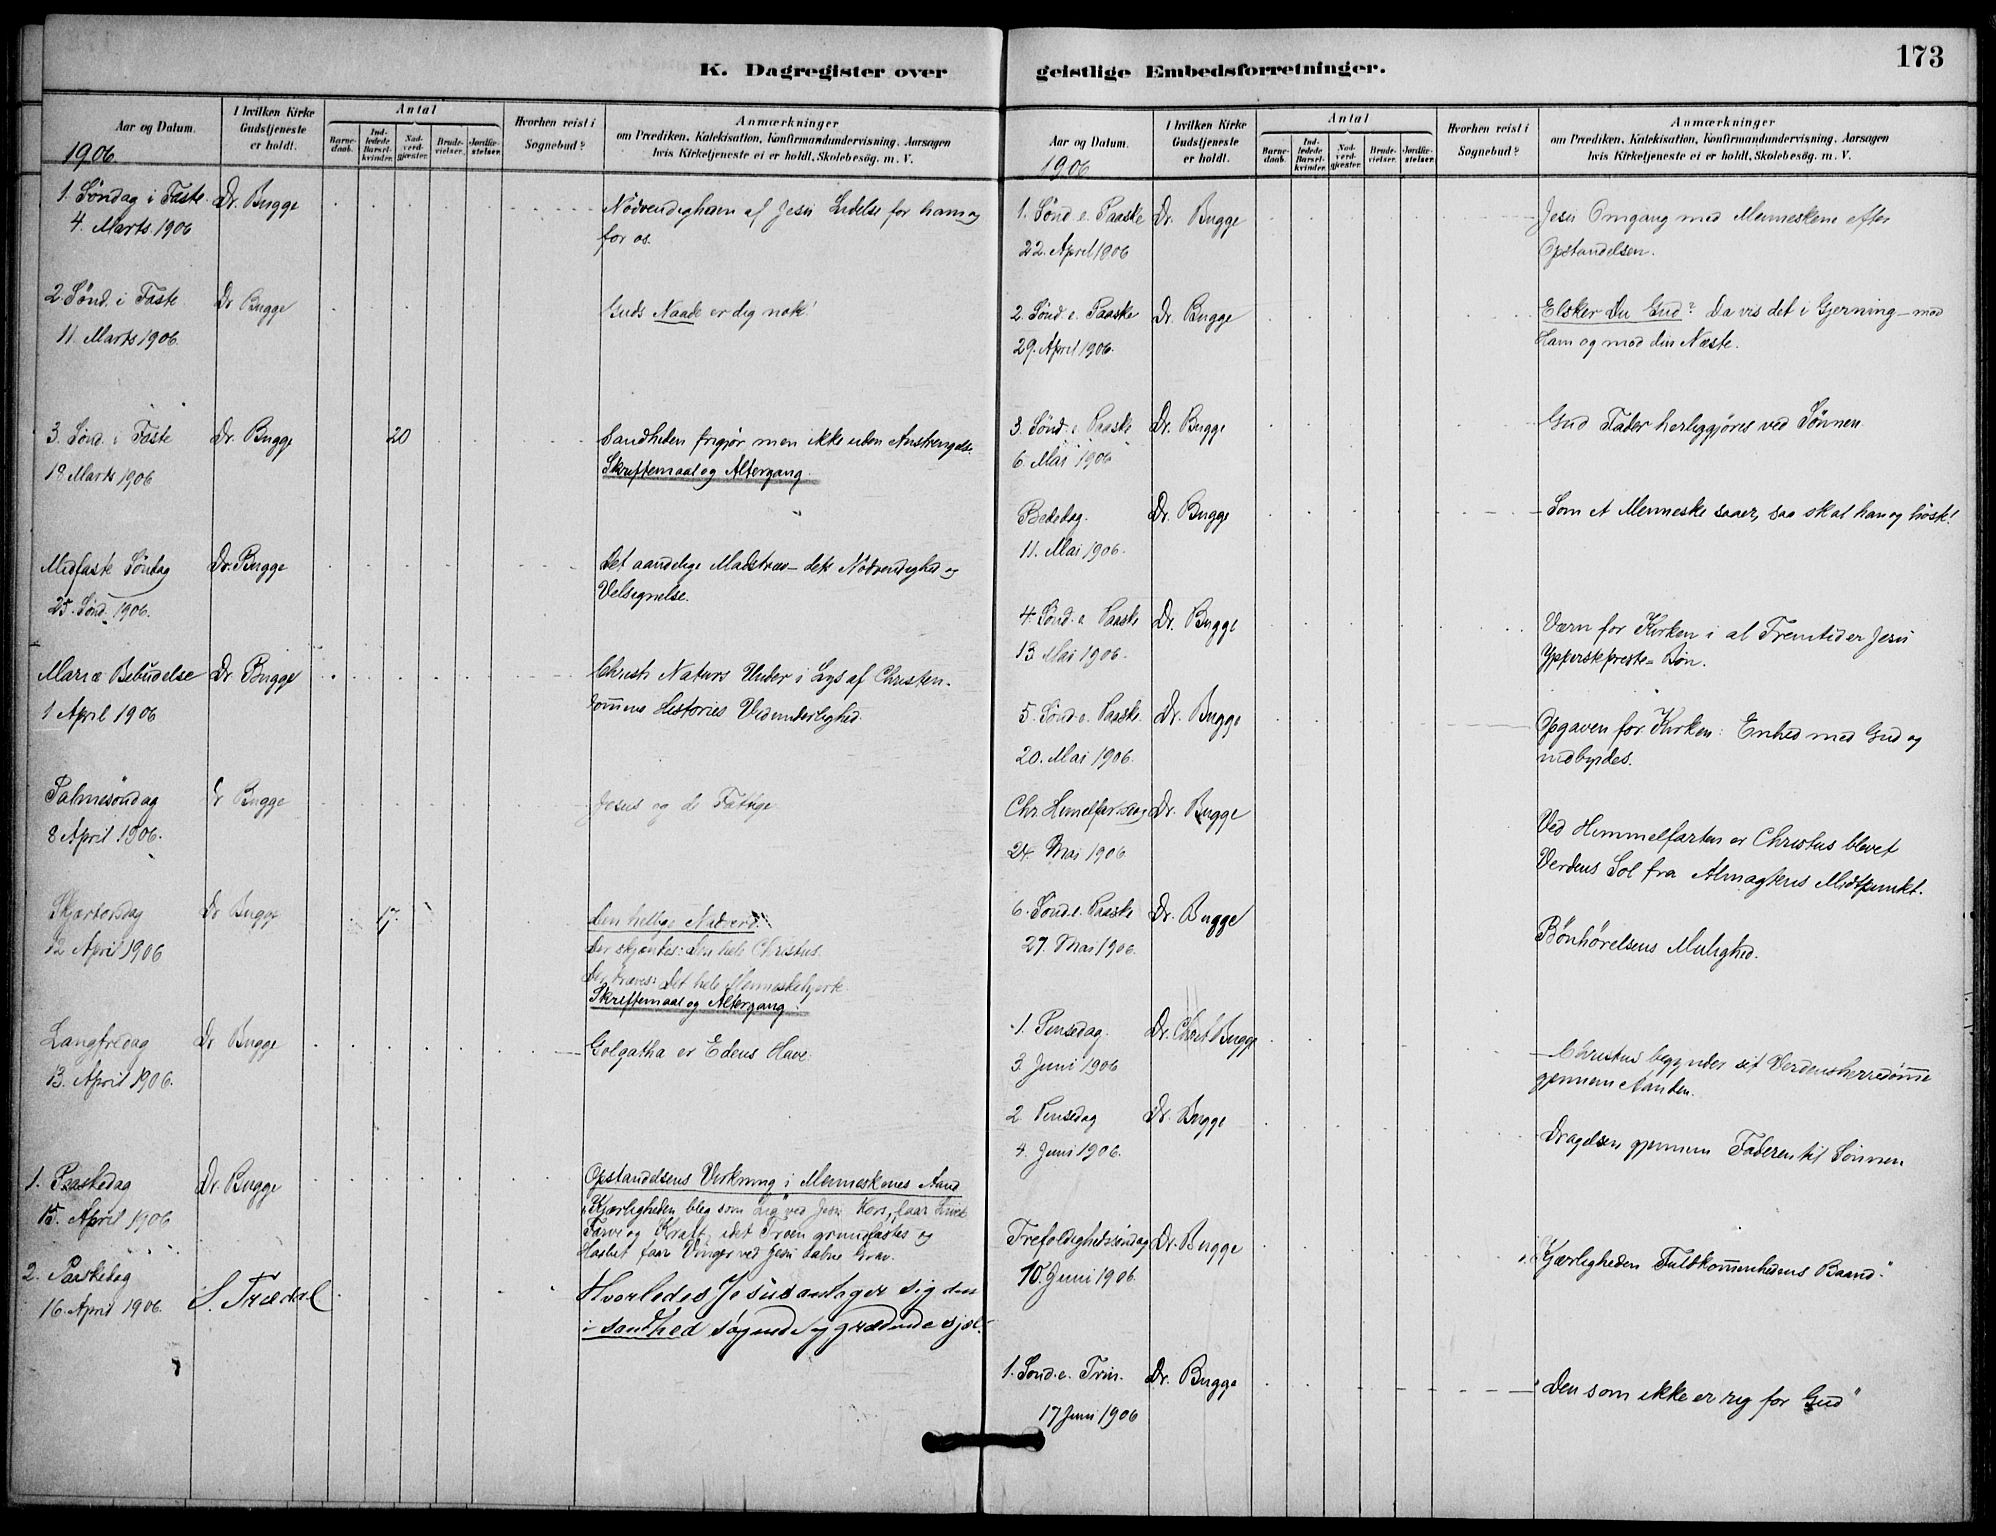 K. Dagregister over
Aar og Datum.
I hvilken Kirke Gudstjeneste er holdt.
Antal
Barnedaab.
Indledede Barselkvinder.
Nadverdgjæster.
Brudevielser.
Jordfæstelser.
Hvorhen reist i Sognebud?
Anmærkninger
om Prædiken, Katekisation, Konfirmandundervisning, Aarsagen
hvis Kirketjeneste ei er holdt, Skolebesög. m. V.
1906
1. Søndag i Faste Dr. Bugge Nødvendigheden af Jesu Lidelse for ham og
4. Marts 1906 for os.
2 Sønd. i Faste Dr Bugge Guds Naade er dig nok!
11. Marts 1906.
3. Sønd. i Faste Dr. Bugge 20 Sandheden frigjør men ikke uden Anstrengelse.
18 Marts 1906 Skriftemaal og Altergang.
Midfaste Søndag Dr. Bugge Det aandelige Madstræv – dets Nødvendighed og
25. Sønd. 1906. Velsignelse.
Mariæ Bebudelse Dr. Bugge Christi Naturs Under i Lys af Christen-
1 April 1906 dommens Histories Vidunderlighed.
Palmesøndag Dr Bugge Jesus og de Fattige
8 April 1906.
Skjærtorsdag Dr Bugge 17. Den hellige Nadverd.
12 April 1906 Der skjænkes: den hele Christus.
Der kræves: Det hele Menneskehjerte
Skriftemaal og Altergang.
Langfredag Dr Bugge Golgatha er Edens Have.
13. April 1906.
1. Paaskedag Dr. Bugge Opstandelsens Virkning i Menneskenes Aand
15. April 1906 Kjærligheden bleg som Lig ved Jesu Kors, faar Livets
Farve og Kraft, idet Troen grundfastes og
Haabet faar Vinger ved Jesu aabne Grav.
2. Paaskedag S. Trædal Hvorledes Jesus antager sig den
16. April 1906. i sandhed søgende og grædende sjæl.
geistlige Embedsforretninger.
173
Aar og Datum.
I hvilken Kirke Gudstjeneste er holdt.
Antal
Barnedaab.
Indledede Barselkvinder.
Nadverdgjæster.
Brudevielser.
Jordfæstelser.
Hvorhen reist i Sognebud?
Anmærkninger
om Prædiken, Katekisation, Konfirmandundervisning, Aarsagen
hvis Kirketjeneste ei er holdt, Skolebesög. m. V.
1906
1. Sønd. e. Paaske Dr. Bugge Jesu Omgang med Menneskene efter
22. April 1906 Opstandelsen.
2. Sønd e. Paaske Dr. Bugge Elsker Du Gud? Da vis det i Gjerning mod
29. April 1906. Ham og mod din Næste.
3. Sønd. e Paaske Dr. Bugge Gud Fader herliggjøres ved Sønnen.
6. Mai 1906
Bededag. Dr. Bugge Som et Menneske saaer, saa skal han og høste!
11. Mai 1906.
4. Sønd. e. Paaske Dr. Bugge Værn for Kirken i al Fremtid er Jesu
13. Mai 1906. Ypperstepreste-Bøn.
5. Sønd. e. Paaske. Dr. Bugge Opgaven for Kirken: Enhed med Gud og
20. Mai 1906. indbyrdes.
Chr. Himelfartsdag Dr. Bugge Ved Himmelfarten er Christus blevet
24. Mai 1906 Verdens Sol fra Almagtens Midtpunkt.
6. Sønd. e. Paaske Dr. Bugge Bønhørelsens Mulighed.
27. Mai 1906.
1. Pinsedag. Dr. Chr. Bugge Christus begynder sit Verdensherredømme
3. Juni 1906 gjennem Aanden.
2. Pinsedag Dr. Bugge Dragelsen gjennem Faderen til Sønnen
4. Juni 1906.
Trefoldighedssøndag Dr. Bugge "Kjærligheden Fuldkommenhedens Baand."
10. Juni 1906.
1. Sønd. e. Trin. Dr. Bugge "Den som ikke er rig for Gud"
17 Juni 1906